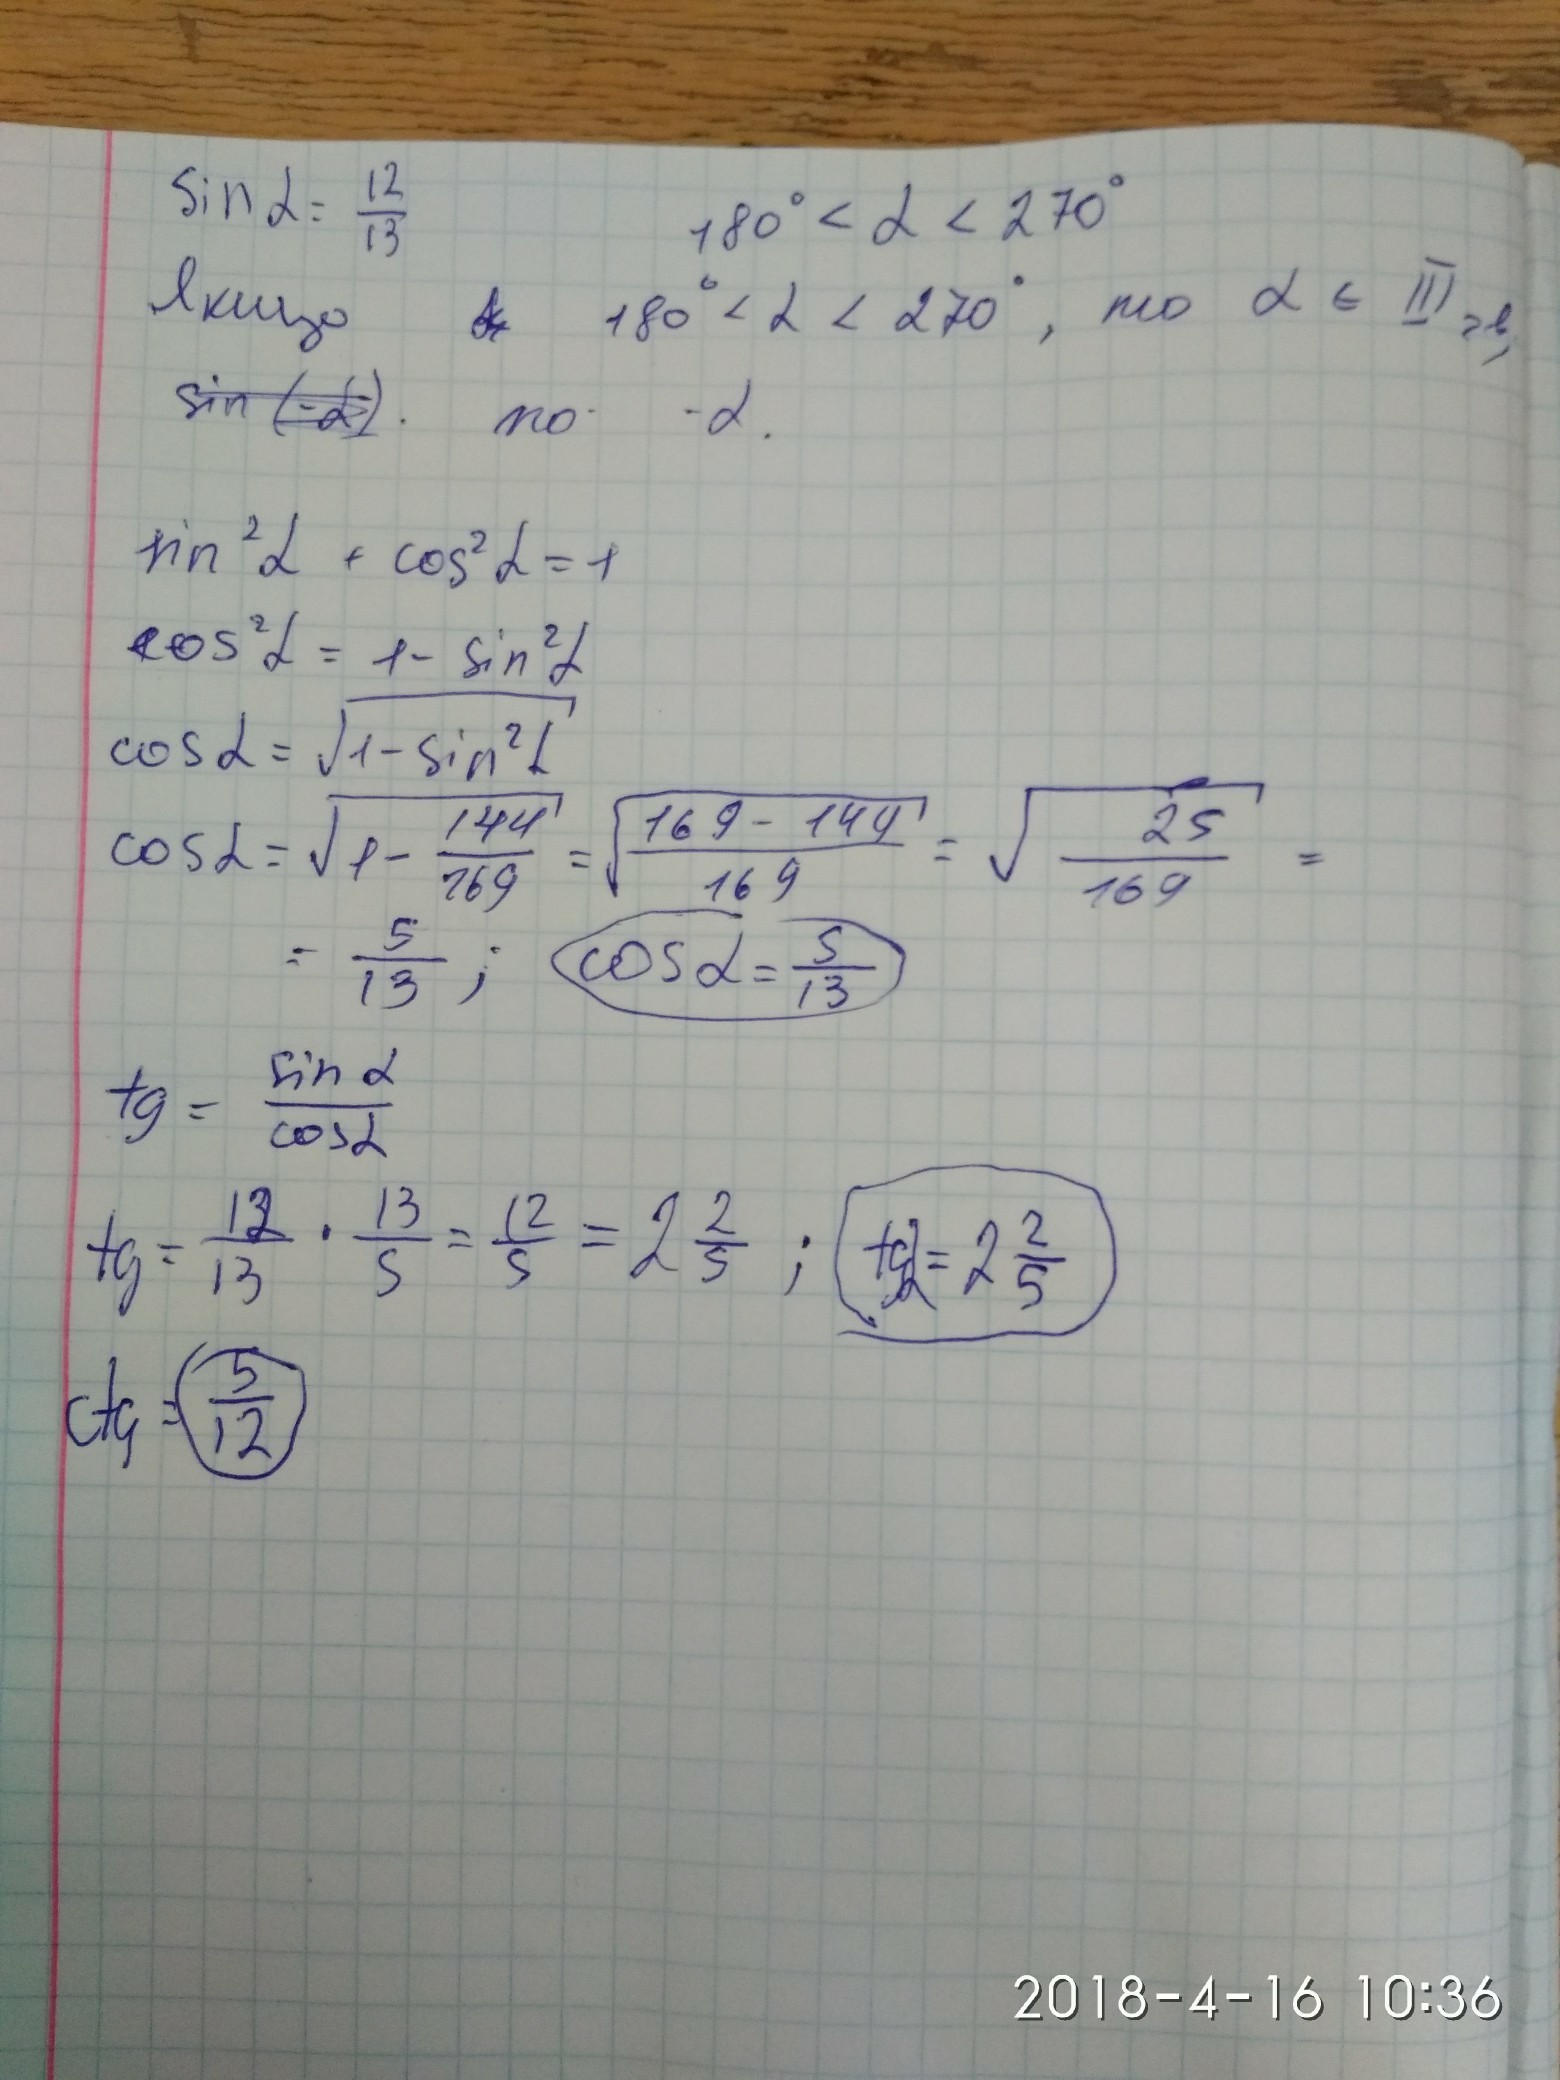 sin α = 12/13 180° < α < 270°
Якщо 180° < α < 270°, то α ∈ III
sin (-α). то -α.
sin²α + cos²α = 1
cos²α = 1 - sin²α
cosα = √(1 - sin²α)
cosα = √(1 - 144/169) = √((169 - 144)/169) = √(25/169) =
= 5/13 ; cosα = 5/13
tg = sin α/cosα
tg = 12/13 · 13/5 = 12/5 = 2 2/5 ; tgα = 2 2/5
ctg = 5/12
2018-4-16 10:36